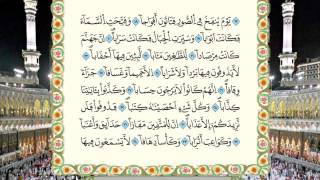 يَوْمَ يُنفَخُ فِي الصُّورِ فَتَأْتُونَ أَفْوَاجًا ۝ وَفُتِحَتِ السَّمَاءُ
فَكَانَتْ أَبْوَابًا ۝ وَسُيِّرَتِ الْجِبَالُ فَكَانَتْ سَرَابًا ۝ إِنَّ جَهَنَّمَ
كَانَتْ مِرْصَادًا ۝ لِّلطَّاغِينَ مَآبًا ۝ لَّابِثِينَ فِيهَا أَحْقَابًا ۝
لَّا يَذُوقُونَ فِيهَا بَرْدًا وَلَا شَرَابًا ۝ إِلَّا حَمِيمًا وَغَسَّاقًا ۝ جَزَاءً
وِفَاقًا ۝ إِنَّهُمْ كَانُوا لَا يَرْجُونَ حِسَابًا ۝ وَكَذَّبُوا بِآيَاتِنَا
كِذَّابًا ۝ وَكُلَّ شَيْءٍ أَحْصَيْنَاهُ كِتَابًا ۝ فَذُوقُوا فَلَن
نَّزِيدَكُمْ إِلَّا عَذَابًا ۝ إِنَّ لِلْمُتَّقِينَ مَفَازًا ۝ حَدَائِقَ وَأَعْنَابًا
۝ وَكَوَاعِبَ أَتْرَابًا ۝ وَكَأْسًا دِهَاقًا ۝ لَّا يَسْمَعُونَ فِيهَا